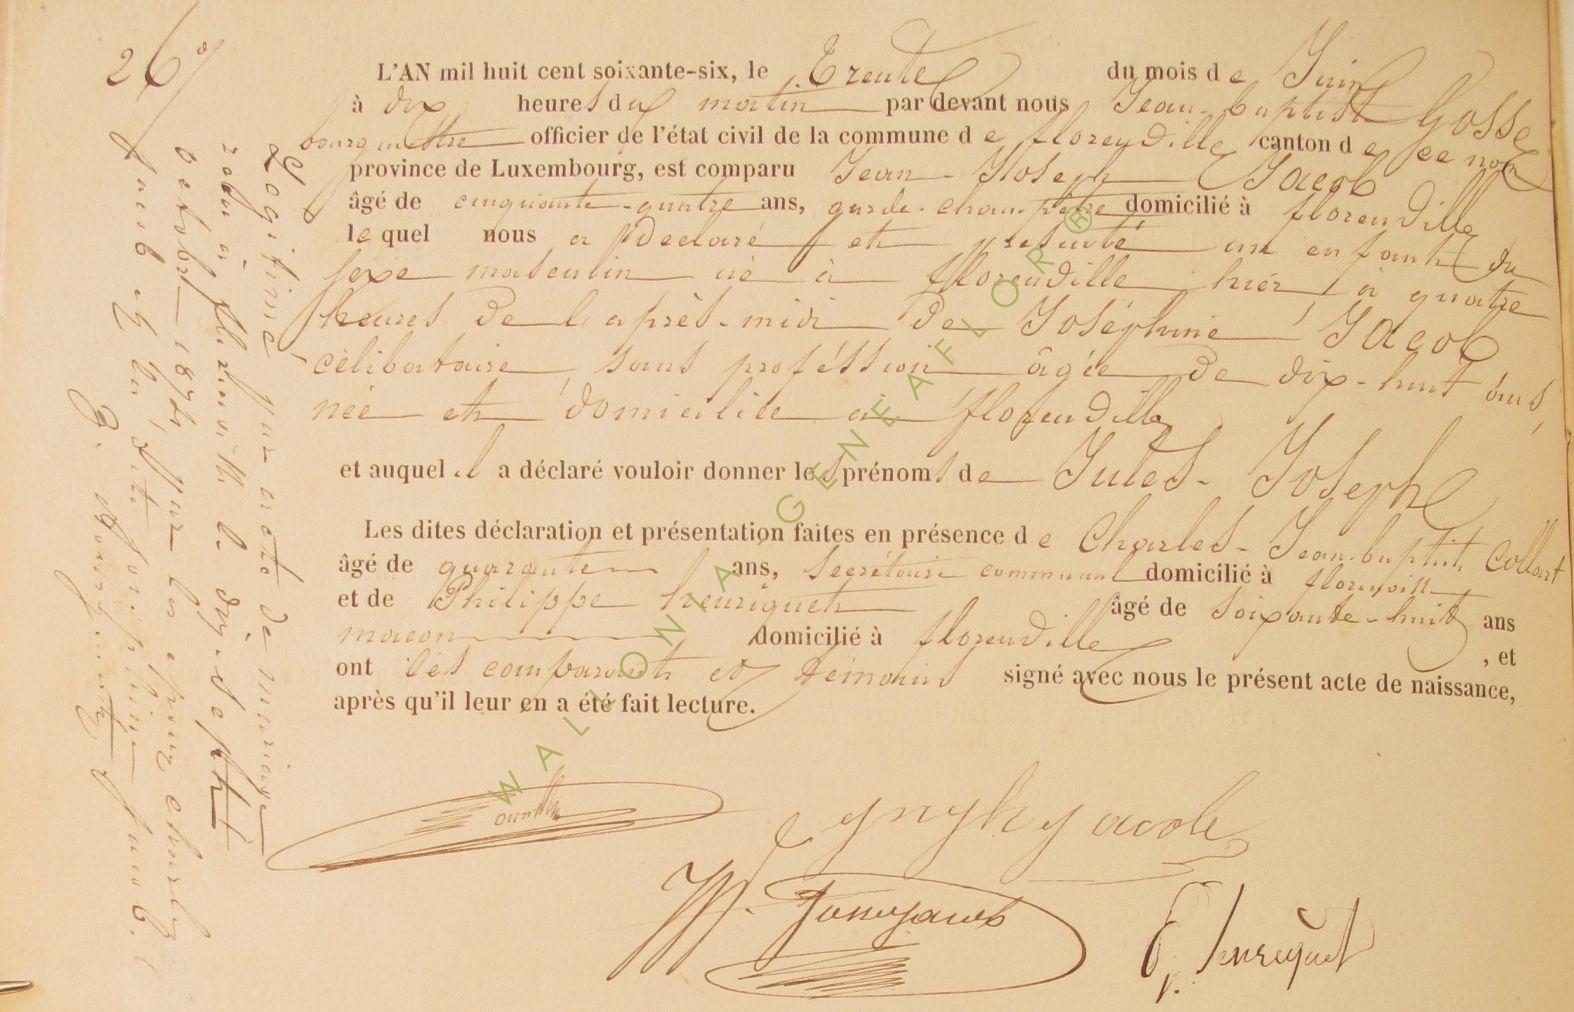 26
L'AN mil huit cent soixante-six, le Trente du mois de Juin
à dix heures du matin par devant nous Jean-baptist Gosse
bourguemestre officier de l'état civil de la commune de florenville canton de ce nom
province de Luxembourg, est comparu Jean-Joseph Jacob
âgé de cinquante-quatre ans, garde-champetre domicilié à florenville
lequel nous a Declaré et présenté un enfant du
sexe masculin né à florenville hier à quatre
heures De l'après-midi De Joséphine Jacob
célibataire sans proféssion âgée De dix-huit ans,
née et domiciliée à florenville
et auquel il a déclaré vouloir donner les prénoms de Jules-Joseph
Les dites déclaration et présentation faites en présence de Charles-Jean-baptist Collart
âgé de quarante ans, Secrétaire communal domicilié à florenville
et de Philippe henriquet âgé de soixante-huit ans
macon domicilié à florenville , et
ont les comparant et témoins signé avec nous le présent acte de naissance,
après qu'il leur en a été fait lecture.
Légitimé par acte de mariage
reçu à florenville le dix-sept
octobre 187 par les époux charles
Jacob et dite Joséphine Jacob.
jacob
henriquet
WALLONIA-GENEAFLOR®